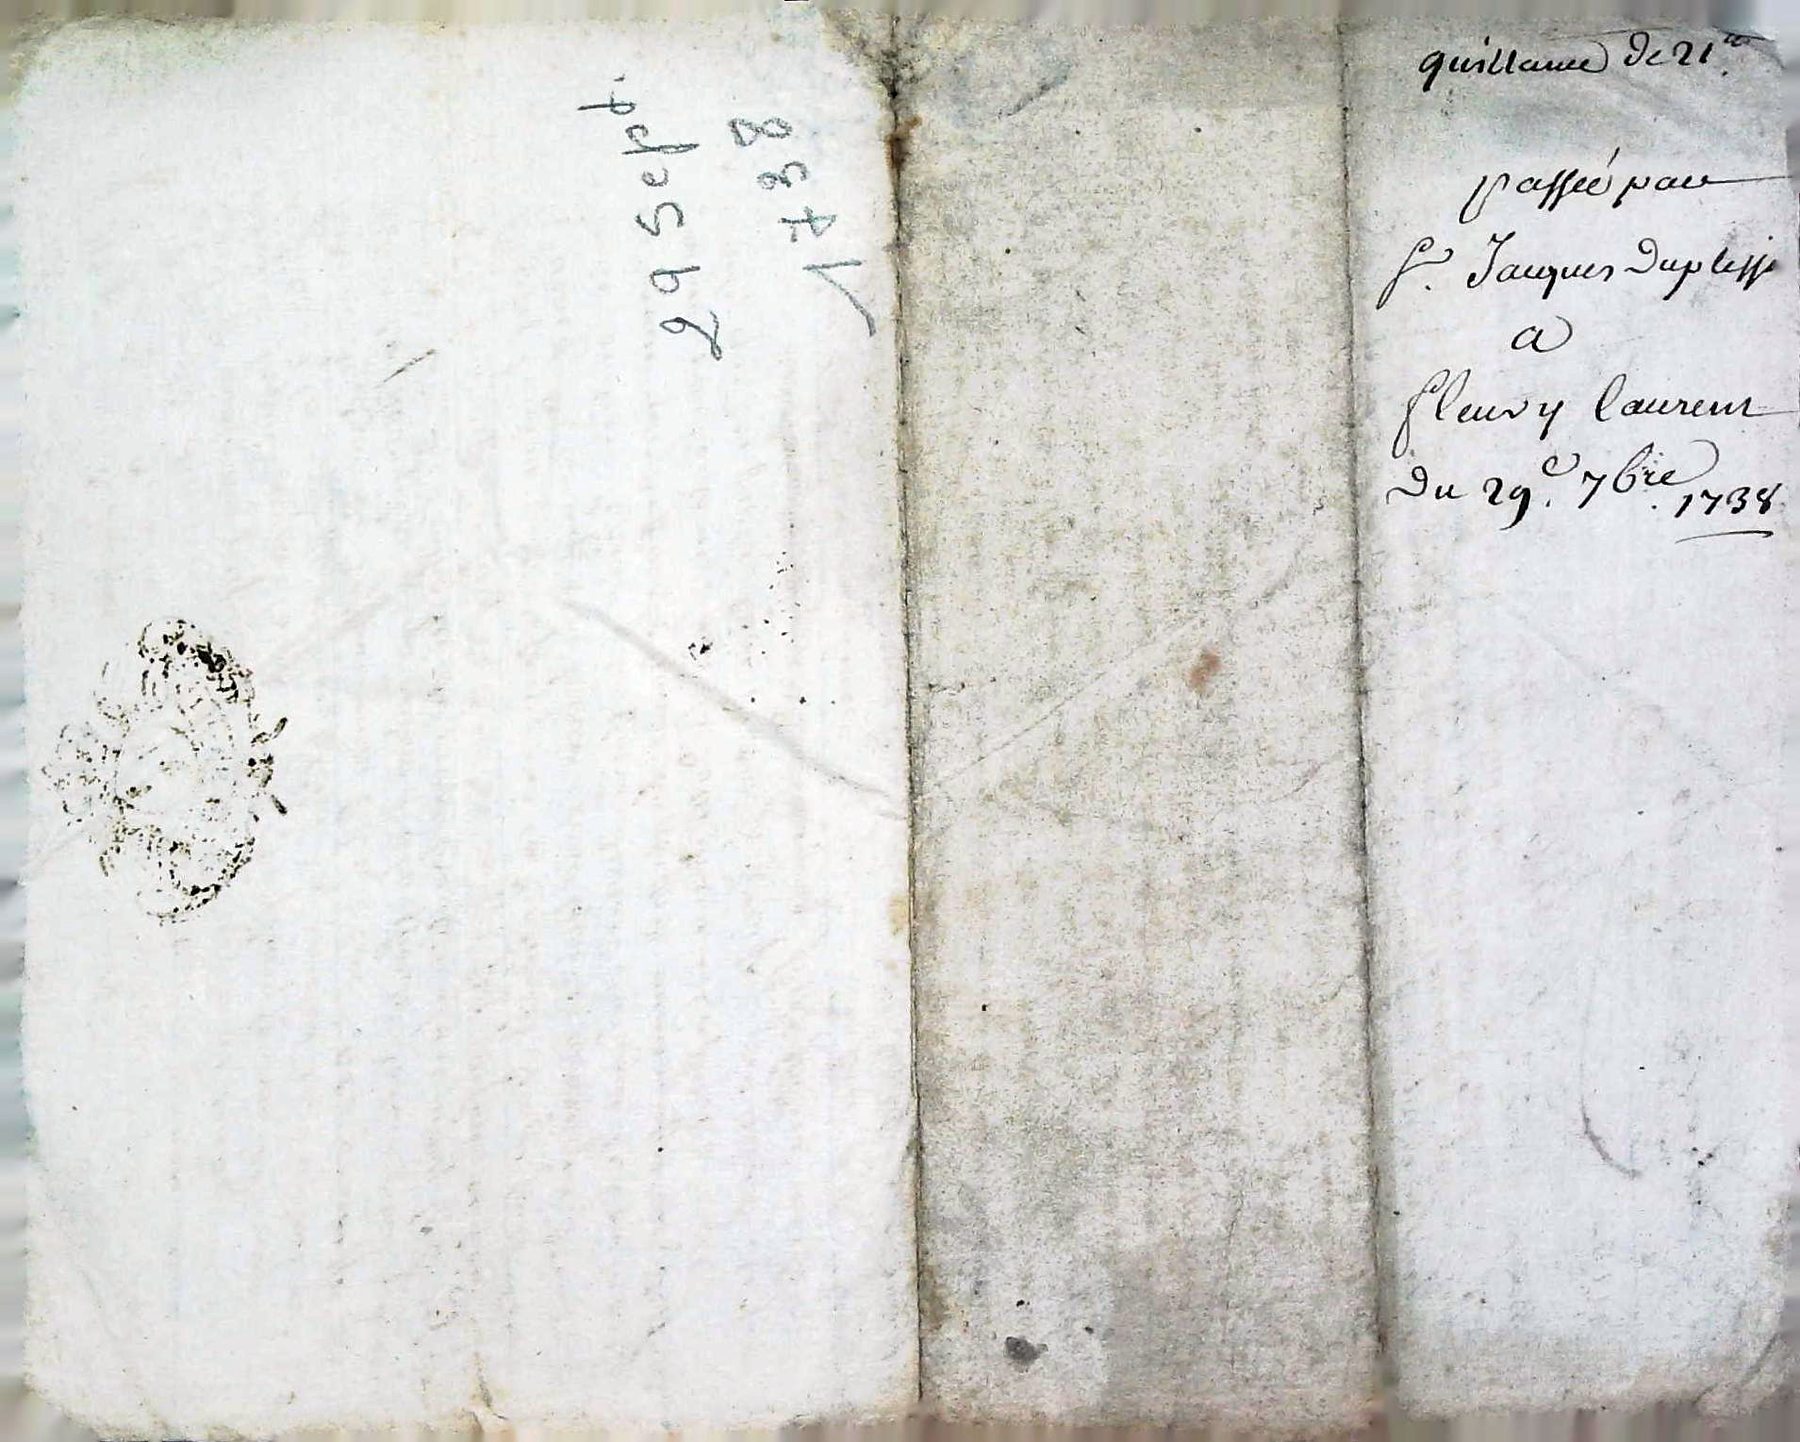 29 Sept.
1738
quittance de 21ᵗᵗ.
passée par
Sr. Jacques Duplessi
a
fleury laurent
Du 29.e 7bre. 1738